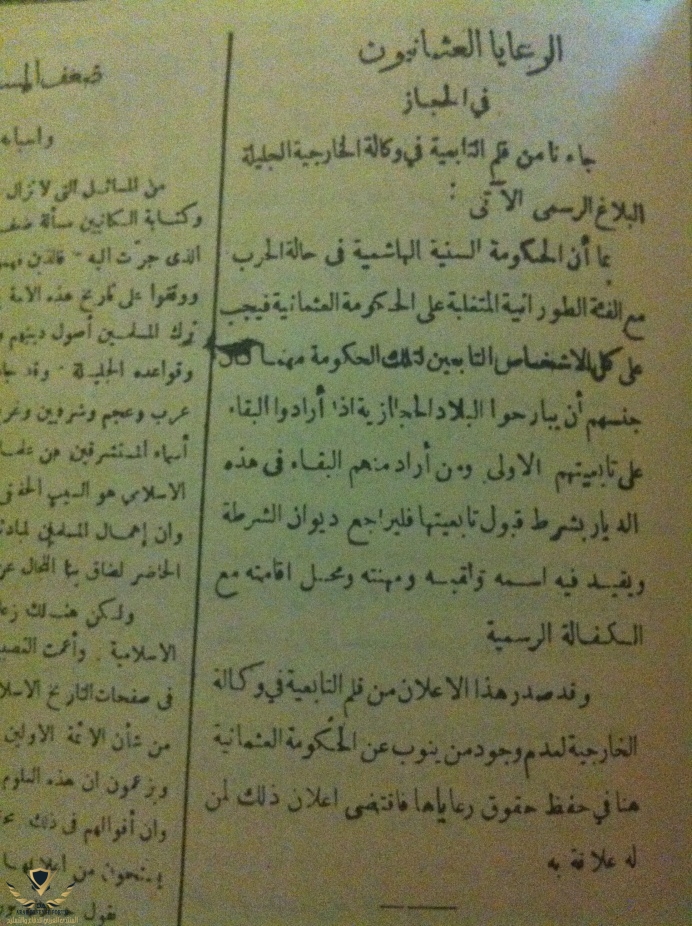 الرعايا العثمانيون
في الحجاز
جاءنا من قلم التابعية في وكالة الخارجية الجليلة
البلاغ الرسمى الآتى :
بما أن الحكومة السنية الهاشمية فى حالة الحرب
مع الفئة الطورانية المتغلبة على الحكومة العثمانية فيجب
على كل الاشخاص التابعين لتلك الحكومة مهما كان
جنسهم أن يبارحوا البلاد الحجازية اذا أرادوا البقاء
على تابعيتهم الاولى ومن أراد منهم البقاء فى هذه
الديار بشرط قبول تابعيتها فليراجع ديوان الشرطة
ويقيد فيه اسمه ولقبه ومهنته ومحل اقامته مع
الكفالة الرسمية
وقد صدر هذا الاعلان من قلم التابعية في وكالة
الخارجية لعدم وجود من ينوب عن الحكومة العثمانية
هنا في حفظ حقوق رعاياها فاقتضى اعلان ذلك لمن
له علاقة به
ضعف
واسبابه
من المسائل التى لا تزال
وكتابة الكاتبين مسألة ضعف
الذى جرّت اليه
ووقفوا على تاريخ هذه الامة
ترك المسلمين أصول دينهم
وقواعده الجليلة . وقد
عرب وعجم وشرقيين
أسماء المستشرقين من
الاسلامى هو السبب
وان إهمال المسلمين
الحاضر لضاق بنا المجال عن
ولكن هنالك
الاسلامية . وأعمت
فى صفحات التاريخ
من شأن الائمة الاولين
ويزعمون ان هذه العلوم
وان أقوالهم فى ذلك
من
نقول